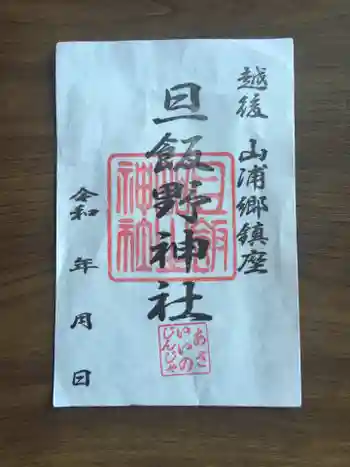 越後 山浦郷鎮座
旦飯野神社
旦飯野神社
あさ
いいの
じんじゃ
令和 年 月 日